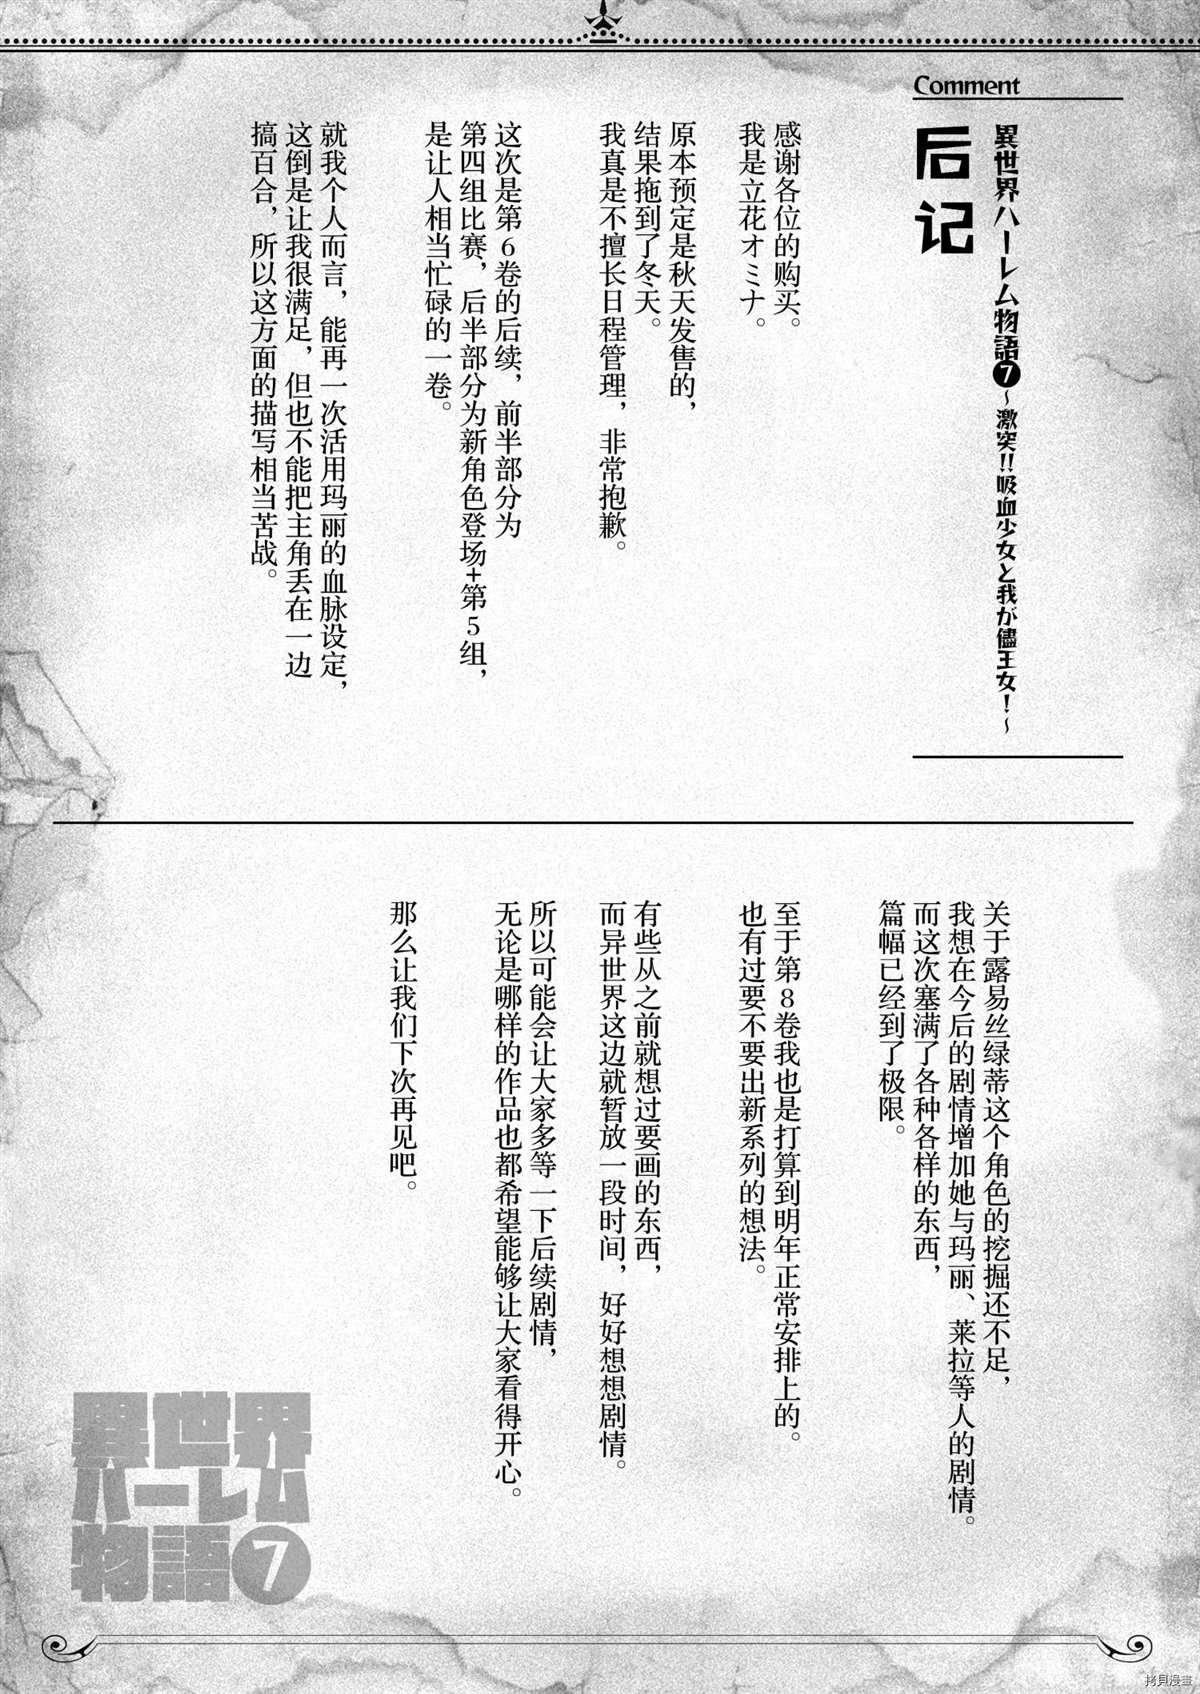 Comment
異世界ハーレム物語❼~激突!!吸血少女と我が儘王女!~
后记
感谢各位的购买。
我是立花オミナ。
原本预定是秋天发售的，
结果拖到了冬天。
我真是不擅长日程管理，非常抱歉。
这次是第6卷的后续，前半部分为
第四组比赛，后半部分为新角色登场+第5组，
是让人相当忙碌的一卷。
就我个人而言，能再一次活用玛丽的血脉设定，
这倒是让我很满足，但也不能把主角丢在一边
搞百合，所以这方面的描写相当苦战。
关于露易丝绿蒂这个角色的挖掘还不足，
我想在今后的剧情增加她与玛丽、莱拉等人的剧情。
而这次塞满了各种各样的东西，
篇幅已经到了极限。
至于第8卷我也是打算到明年正常安排上的。
也有过要不要出新系列的想法。
有些从之前就想过要画的东西，
而异世界这边就暂放一段时间，好好想想剧情。
所以可能会让大家多等一下后续剧情，
无论是哪样的作品也都希望能够让大家看得开心。
那么让我们下次再见吧。
異世界
ハーレム
物語❼
拷貝漫畫